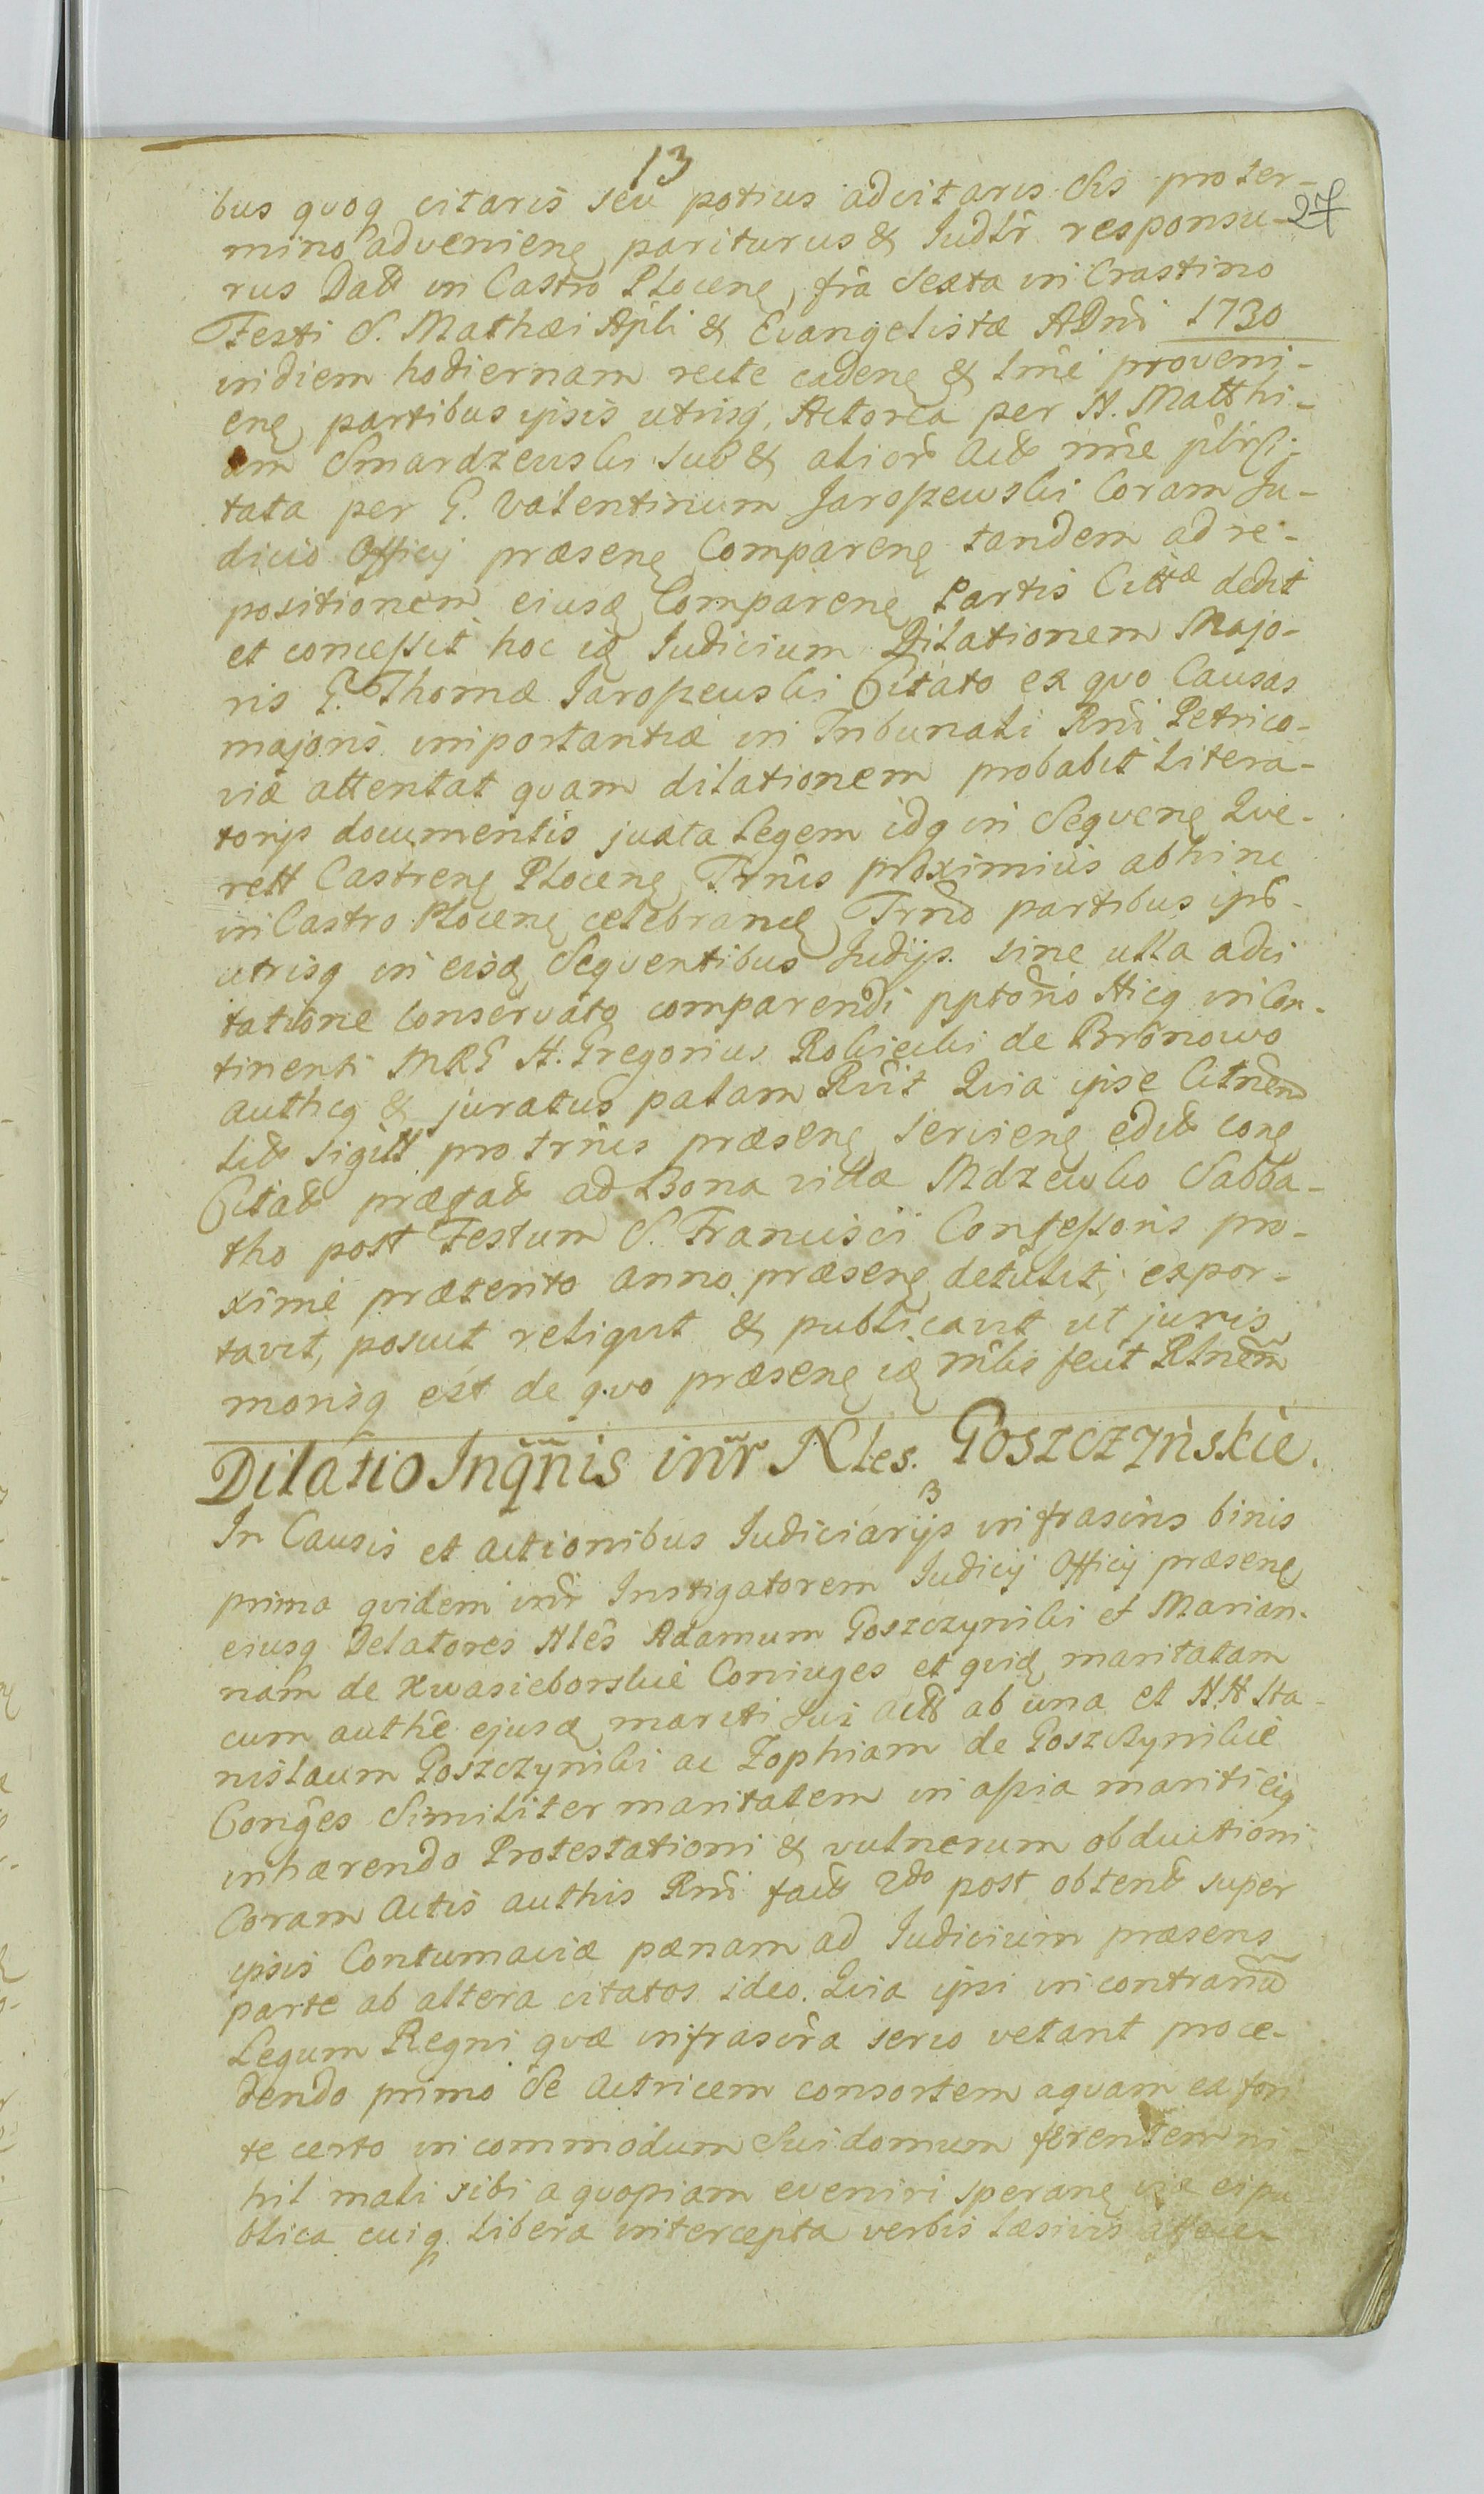 13
27
bus quoq citaris seu potius adcitaris Sis pro ter-
mino advenienę pariturus & Judlr responsu-
rus Datt in Castro Plocenę fria Sexta in Crastino
Festi S. Mathæi Apli & Evangelistæ ADni 1730
in diem hodiernam recte cadenę & tmie proveni-
enę partibus ipsis utrisq, Actorea per N. Matthi-
am Smardzewski suo & alior Act nnie
tata per G. Valentinum Jaroszewski Coram Ju-
dicio Officij præsenę Comparenę tandem ad re-
positionem eiusd Comparenę Partis Cittæ dedit
et concessit hoc id Judicium Dilationem Majo-
ris G. Thomæ Jaroszewski Citato ex quo Causas
majoris importantiæ in Tribunali Rni Petrico-
viæ attentat quam dilationem probabit litera-
torijs documentis juxta Legem idq in Sequenę Que-
rell Castrenę Plocenę Trnis proximius abhinc
in Castro Plocenę celebrandę Trno partibus ips
utrisq in eisd Sequentibus Judijs. sine ulla adci
tatione conservato comparendi pptorio Hicq in Con-
tinenti MRG N. Gregorius Rokicki de Bronowo
authcq & juratus palam Rcit Quia ipse Citnem
litt sigill pro trnis præsenę servienę edit conę
Citatt prægatt ad Bona villæ Mdzewko Sabba-
tho post Festum S. Francisci Confessoris pro-
xime præterito anno præsenę detulit, expor-
tavit, posuit reliquit & publicavit ut juris
morisq est de quo præsenę id mlis fecit Rlnem
Dilatio Inqnis intr Nles. Goszczynskie.
In Causis et actionibus Judiciarijs infrascris binis
prima quidem intr Instigatorem Judicij Officij præsenę
eiusq Delatores Nles Adamum Goszczynski et Marian-
nam de Kwasieborskie Coniuges et quid maritatam
cum authe ejusd mariti sui actt ab una et N.N Sta-
nislaum Goszczynski ac Zophiam de Goszczynskie
Conges Similiter maritalem in assia mariti eiq
inhærendo Protestationi & vulnerum obductioni
Coram Actis authis Rni fact 2do post obtent super
ipsis Contumaciæ pænam ad Judicium præsens
parte ab altera citatos ideo. Quia ipsi in contrarium
Legum Regni quæ infrascra serio vetant proce-
dendo primo Se Actricem consortem aquam ex fon
te certo in commodum Sui domum ferentem ni-
hil mali sibi a quopiam eveniri speranę via ei pu
blica cuiq libera intercepta verbis læsivis